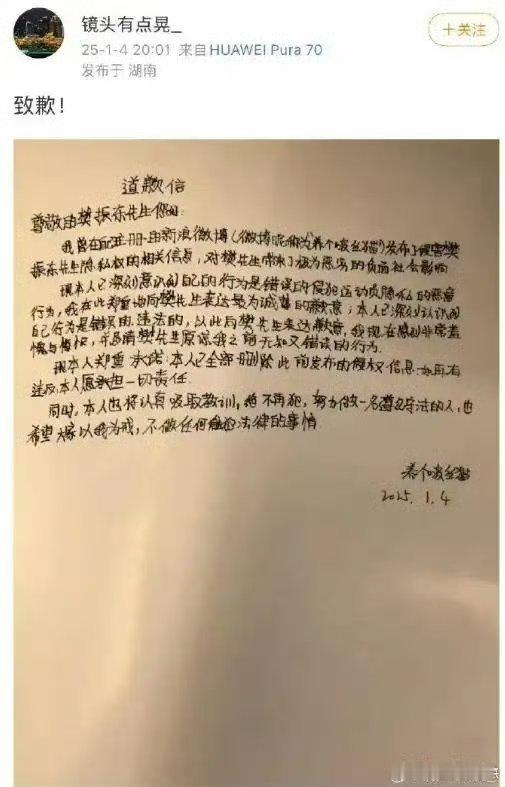 镜头有点晃_
25-1-4 20:01 来自 HUAWEI Pura 70
发布于 湖南
+关注
致歉!
道歉信
尊敬的樊振东先生您好:
我曾在注册的新浪微博(微博昵称为养个啵丝猫)发布了侵害樊
振东先生隐私权的相关信息,对樊先生带来了极为恶劣的负面社会影响
现本人已深刻意识到自己的行为是错误的侵犯运动员隐私的恶意
行为,我在此郑重地向樊先生表达最为诚挚的歉意;本人已深刻认识到
自己行为是错误的、违法的,以此向樊先生表达歉意,我现在感到非常羞
愧与悔恨,并恳请樊先生原谅我之前无知又错误的行为.
现本人郑重承诺:本人已全部删除此前发布的侵权信息.如再有
违反,本人愿承担一切责任.
同时,本人也将认真吸取教训,绝不再犯,努力做一名遵纪守法的人,也
希望大家以我为戒,不做任何触犯法律的事情.
养个啵丝猫
2025.1.4